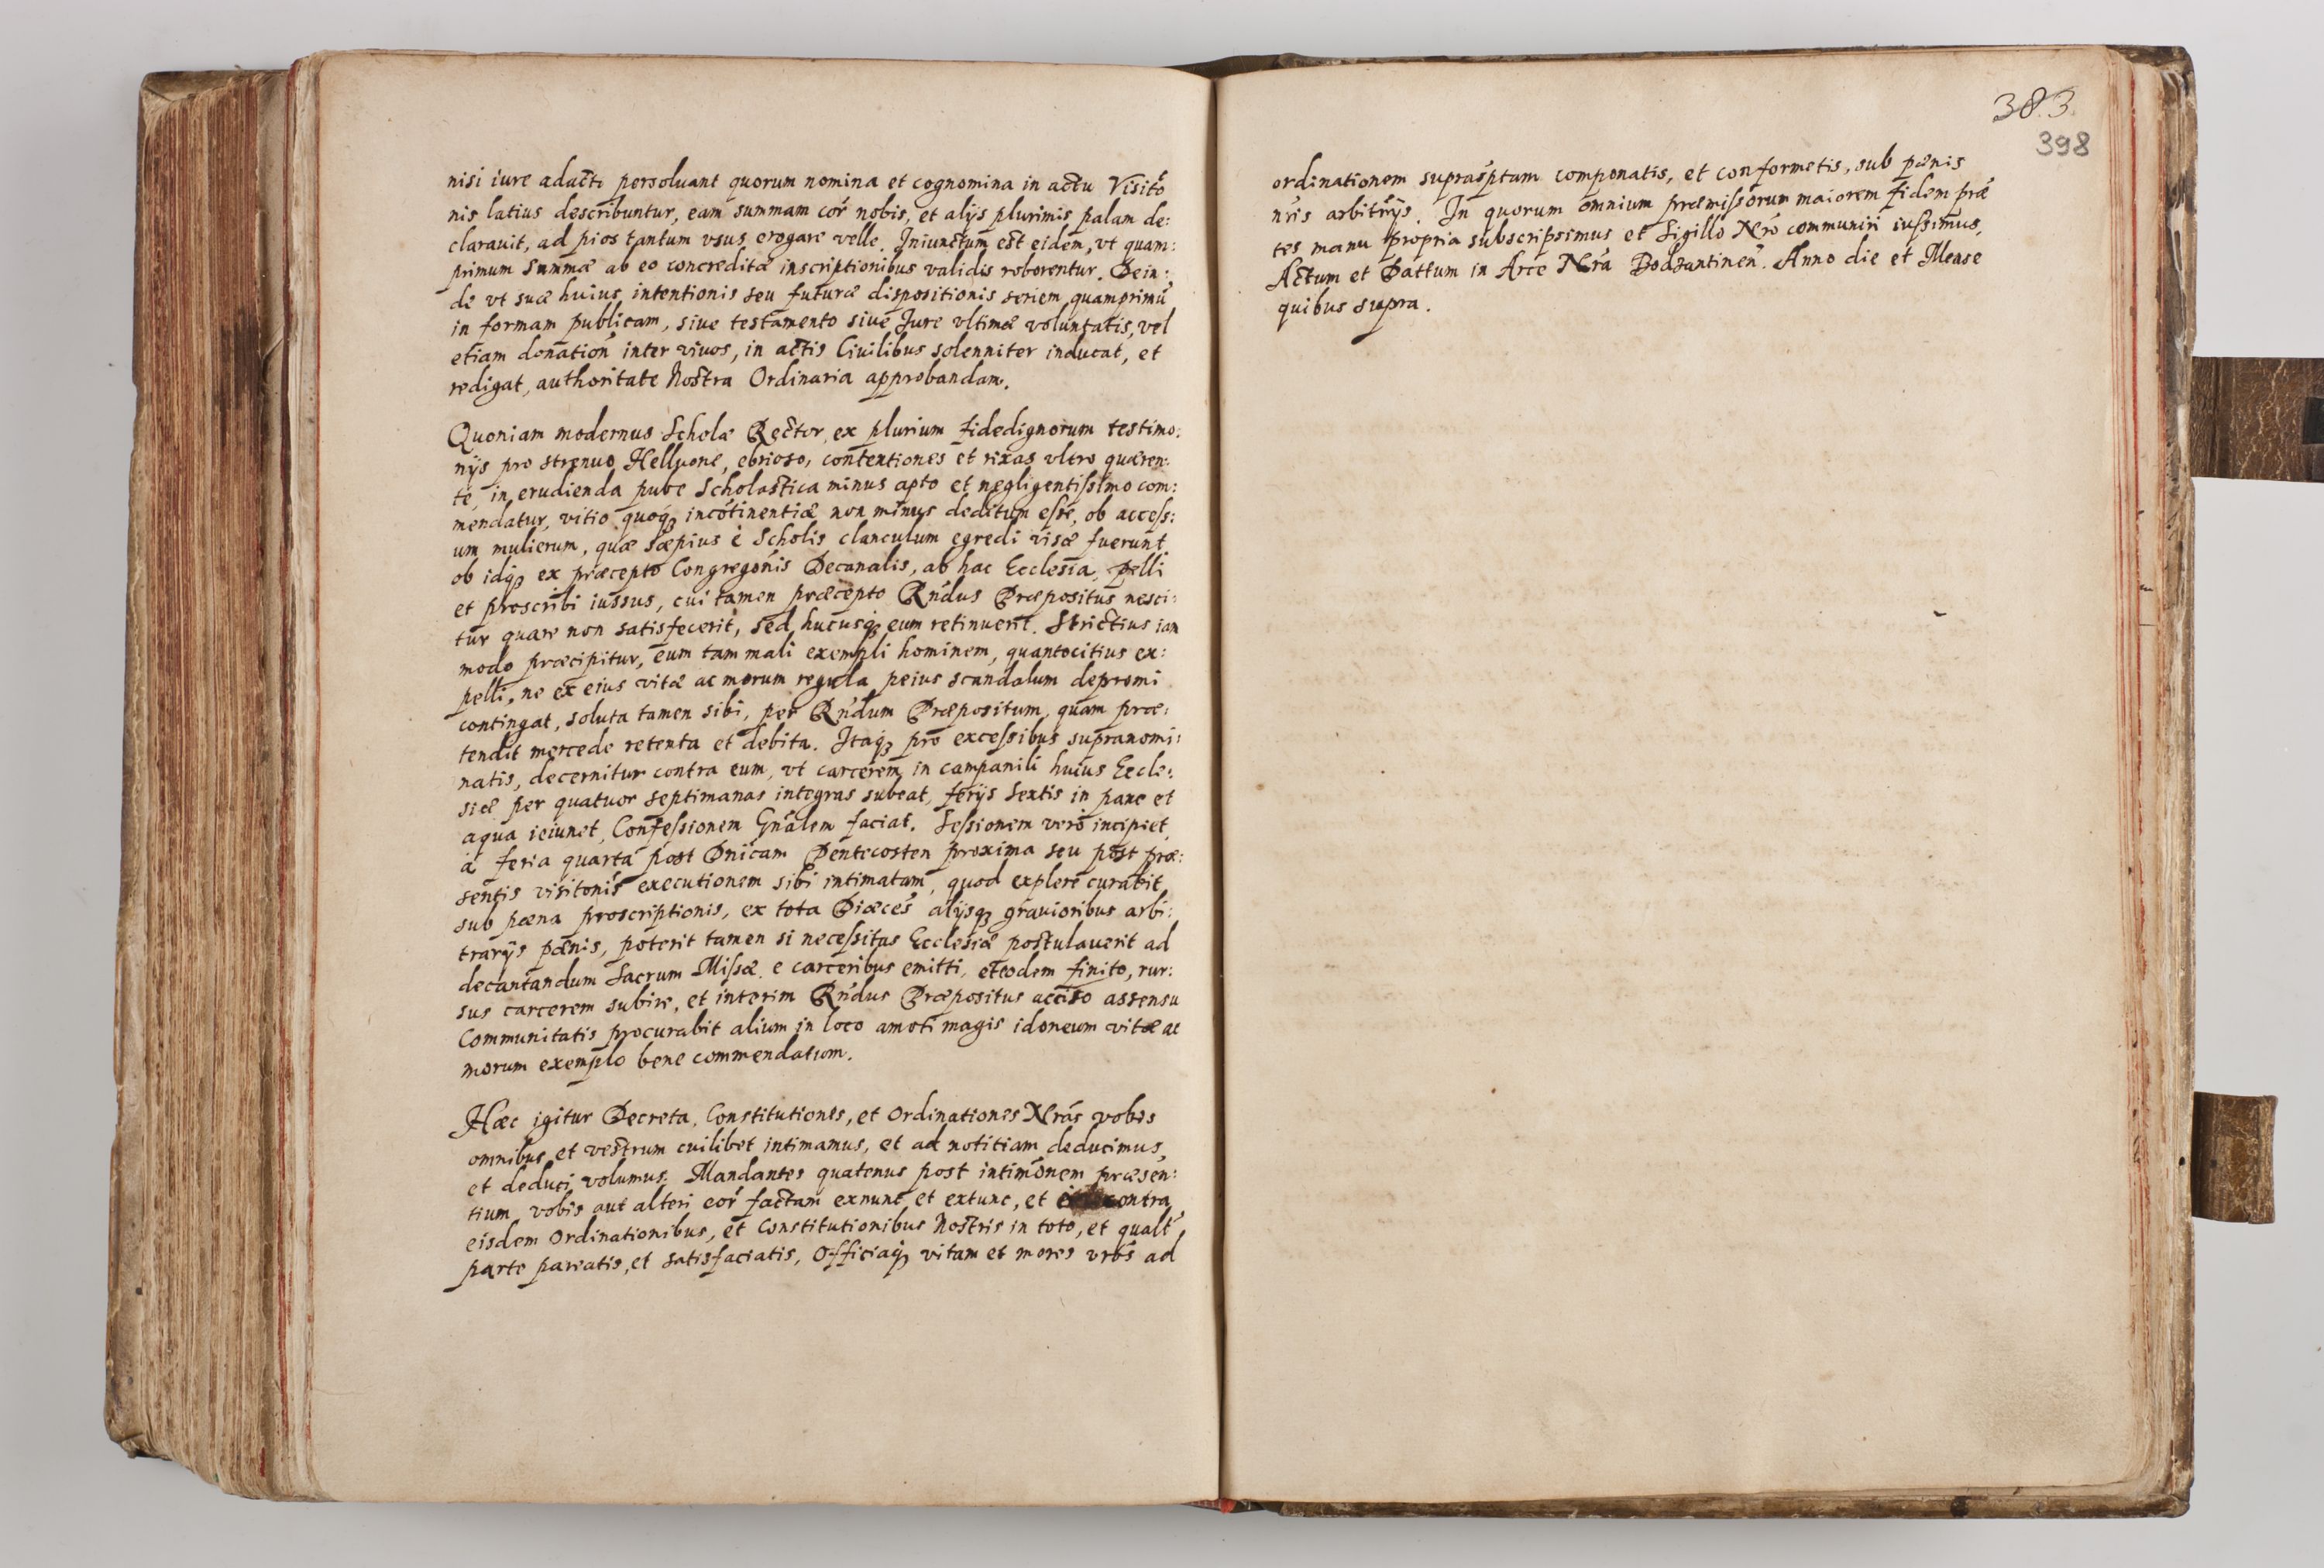 nisi iure adacti persoluant quorum nomina et cognomina in actu Visitó
nis latius describuntur, eam summam cor̃ nobis, et alijs plurimis palam de:
clarauit, ad pios tantum vsus erogare velle. Iniunctum est eidem, vt quam:
primum Summæ ab eo concreditæ inscriptionibus validis roborentur. Dein:
de vt suæ huius intentionis seu futuræ dispositionis seriem quamprimũ
in formam publicam, siue testamento siue Iure vltimæ voluntatis, vel
etiam donation̄ inter viuos, in actis Ciuilibus solenniter inducat, et
redigat, authoritate Nostra Ordinaria approbandam.
Quoniam modernus Scholæ Rector, ex plurium fidedignorum testimo:
nijs pro strenuo Helluone, ebrioso, contentiones et rixas vltro quæren:
te, in erudienda pube Scholastica minus apto et negligentissimo com:
mendatur, vitio quoq; incótinentiæ non minus deditum esse, ob access:
um mulierum, quæ sæpius è Scholis clanculum egredi visæ fuerunt
ob idq; ex præcepto Congregónis Decanalis, ab hac Ecclesia, pelli
et proscribi iussus, cui tamen præcepto Rńdus Præpositus nesci:
tur quare non satisfecerit, sed hucusq; eum retinuerit. Strictius iam
modo præcipitur, eum tam mali exempli hominem, quantocitius ex:
pelli, ne ex eius vitæ ac morum regula peius scandalum depromi
contingat, soluta tamen sibi, per Rńdum Præpositum, quam præ:
tendit mercede retenta et debita. Itaq; pro excessibus supranomi:
natis, decernitur contra eum, vt carcerem in campanili huius Eccle:
siæ per quatuor septimanas integras subeat, ferijs sextis in pane et
aqua ieiunet, Confessionem Gnálem faciat. Sessionem verò incipiet
a feria quarta post Dnicam Pentecosten proxima seu post præ:
sentis visitonis executionem sibi intimatam, quod explere curabit
sub pæna proscriptionis, ex tota Diæces̃ alijsq; grauioribus arbi:
trarijs pænis, poterit tamen si necessitas Ecclesiæ postulauerit ad
decantandum Sacrum Missæ e carceribus emitti, eteodem finito, rur:
sus carcerem subire, et interim Rńdus Præpositus accito assensu
Communitatis procurabit alium in loco amoti magis idoneum vitæ ac
morum exemplo bene commendatum.
Hæc igitur Decreta, Constitutiones, et Ordinationes Nrás vobis
omnibus et vestrum cuilibet intimamus, et ad notitiam deducimus,
et deduci volumus. Mandantes quatenus post intimónem præsen:
tium vobis aut alteri eor̃ factam exnunc et extunc, et contra
eisdem Ordinationibus, et Constitutionibus Nostris in toto, et qualt̃
parte pareatis, et satisfaciatis, Officiaq; vitam et mores vrós ad
383
398
ordinationem suprasptam componatis, et conformetis, sub pænis
nrís arbitrijs. In quorum omnium præmissorum maiorem fidem præ
tes manu propria subscripsimus et Sigillo Nró communiri iussimus.
Actum et Dattum in Arce Nrá Bodzantinen̄. Anno die et Mense
quibus supra.